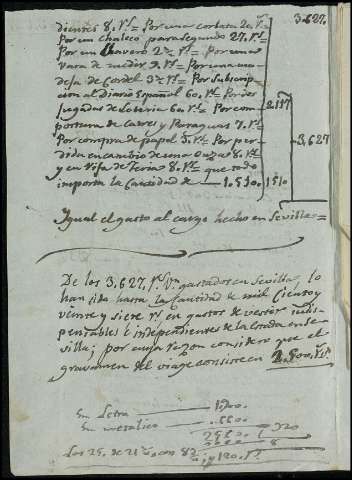 3.627.
dientes 8. r.s = Por una corbata 20. r.s
Por un Chaleco para segundo 27. r.s
Por un Llavero 2½ r.s = Por una
vara de medir 9. r.s = Por una ma-
deja de Cordel 3½ r.s = Por Subscrip-
cion al Diario Español 60. r.s = Por dos
jugadas de Loteria 60. r.s = Por com- 2.117
postura de catres y Paraguas 7. r.s 3,627
Por compra de papel 5. r.s = Por per-
dida en cambio de unas Onzas 8. r.s
y en Rifa de Feria 8. r.s que todo
importa la Cantidad de 1.510. 1510
Igual el gasto al cargo hecho en Sevilla =
De los 3,627, r.s v.n gastados en Sevilla, lo
han sido hasta la Cantidad de mil Ciento y
veinte y siete r.s en gastos de vestir indis-
pensables é independientes de la Estada en Se-
villa; por cuya razon considero que el
gravamen del viage consiste en 2,500, r.s
En Letra
En metalico
Los 25. de 21